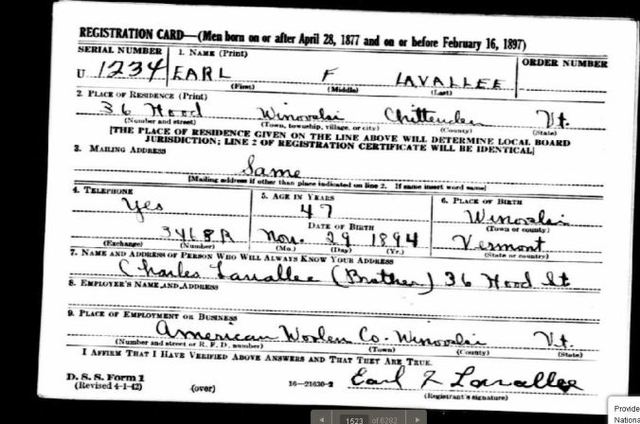 REGISTRATION CARD—(Men born on or after April 28, 1877 and on or before February 16, 1897)
SERIAL NUMBER 1. NAME (Print) ORDER NUMBER
U 1234 EARL F LAVALLEE
(First) (Middle) (Last)
2. PLACE OF RESIDENCE (Print)
36 Hood Winooski Chittenden Vt.
(Number and street) (Town, township, village, or city) (County) (State)
[THE PLACE OF RESIDENCE GIVEN ON THE LINE ABOVE WILL DETERMINE LOCAL BOARD
JURISDICTION; LINE 2 OF REGISTRATION CERTIFICATE WILL BE IDENTICAL]
3. MAILING ADDRESS
Same
[Mailing address if other than place indicated on line 2. If same insert word same]
4. TELEPHONE 5. AGE IN YEARS 6. PLACE OF BIRTH
Yes 47 Winooski
DATE OF BIRTH (Town or county)
3468R Nov. 29 1894 Vermont
(Exchange) (Number) (Mo.) (Day) (Yr.) (State or country)
7. NAME AND ADDRESS OF PERSON WHO WILL ALWAYS KNOW YOUR ADDRESS
Charles Lavallee (Brother) 36 Hood St
8. EMPLOYER'S NAME AND ADDRESS
9. PLACE OF EMPLOYMENT OR BUSINESS
American Woolen Co. Winooski Vt.
(Number and street or R. F. D. number) (Town) (County) (State)
I AFFIRM THAT I HAVE VERIFIED ABOVE ANSWERS AND THAT THEY ARE TRUE.
D. S. S. Form 1
(Revised 4-1-42) (over) 16—21630-2 Earl F Lavallee
(Registrant's signature)
1523 of 6282
Provide
Nations